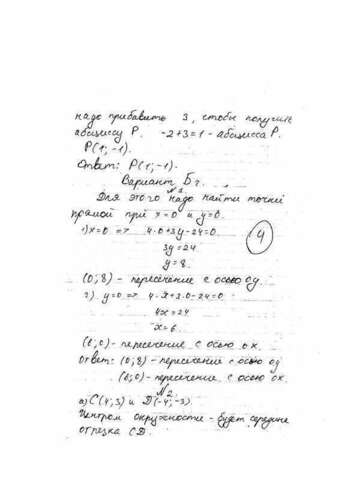 надо прибавить 3, чтобы получить
абсциссу P. -2+3=1 - абсцисса P.
P(1; -1).
Ответ: P(1; -1).
Вариант Б1.
№1.
Для этого надо найти точки
прямой при x=0 и y=0.
1) x=0 => 4·0+3y-24=0
4
3y=24
y=8.
(0; 8) - пересечение с осью oy.
2) y=0 => 4·x+3·0-24=0
4x=24
x=6.
(6; 0) - пересечение с осью ox.
Ответ: (0; 8) - пересечение с осью oy
(6; 0) - пересечение с осью ox.
№2.
а) C(4; 3) и D(-4; -3).
Центром окружности - будет середина
отрезка CD.